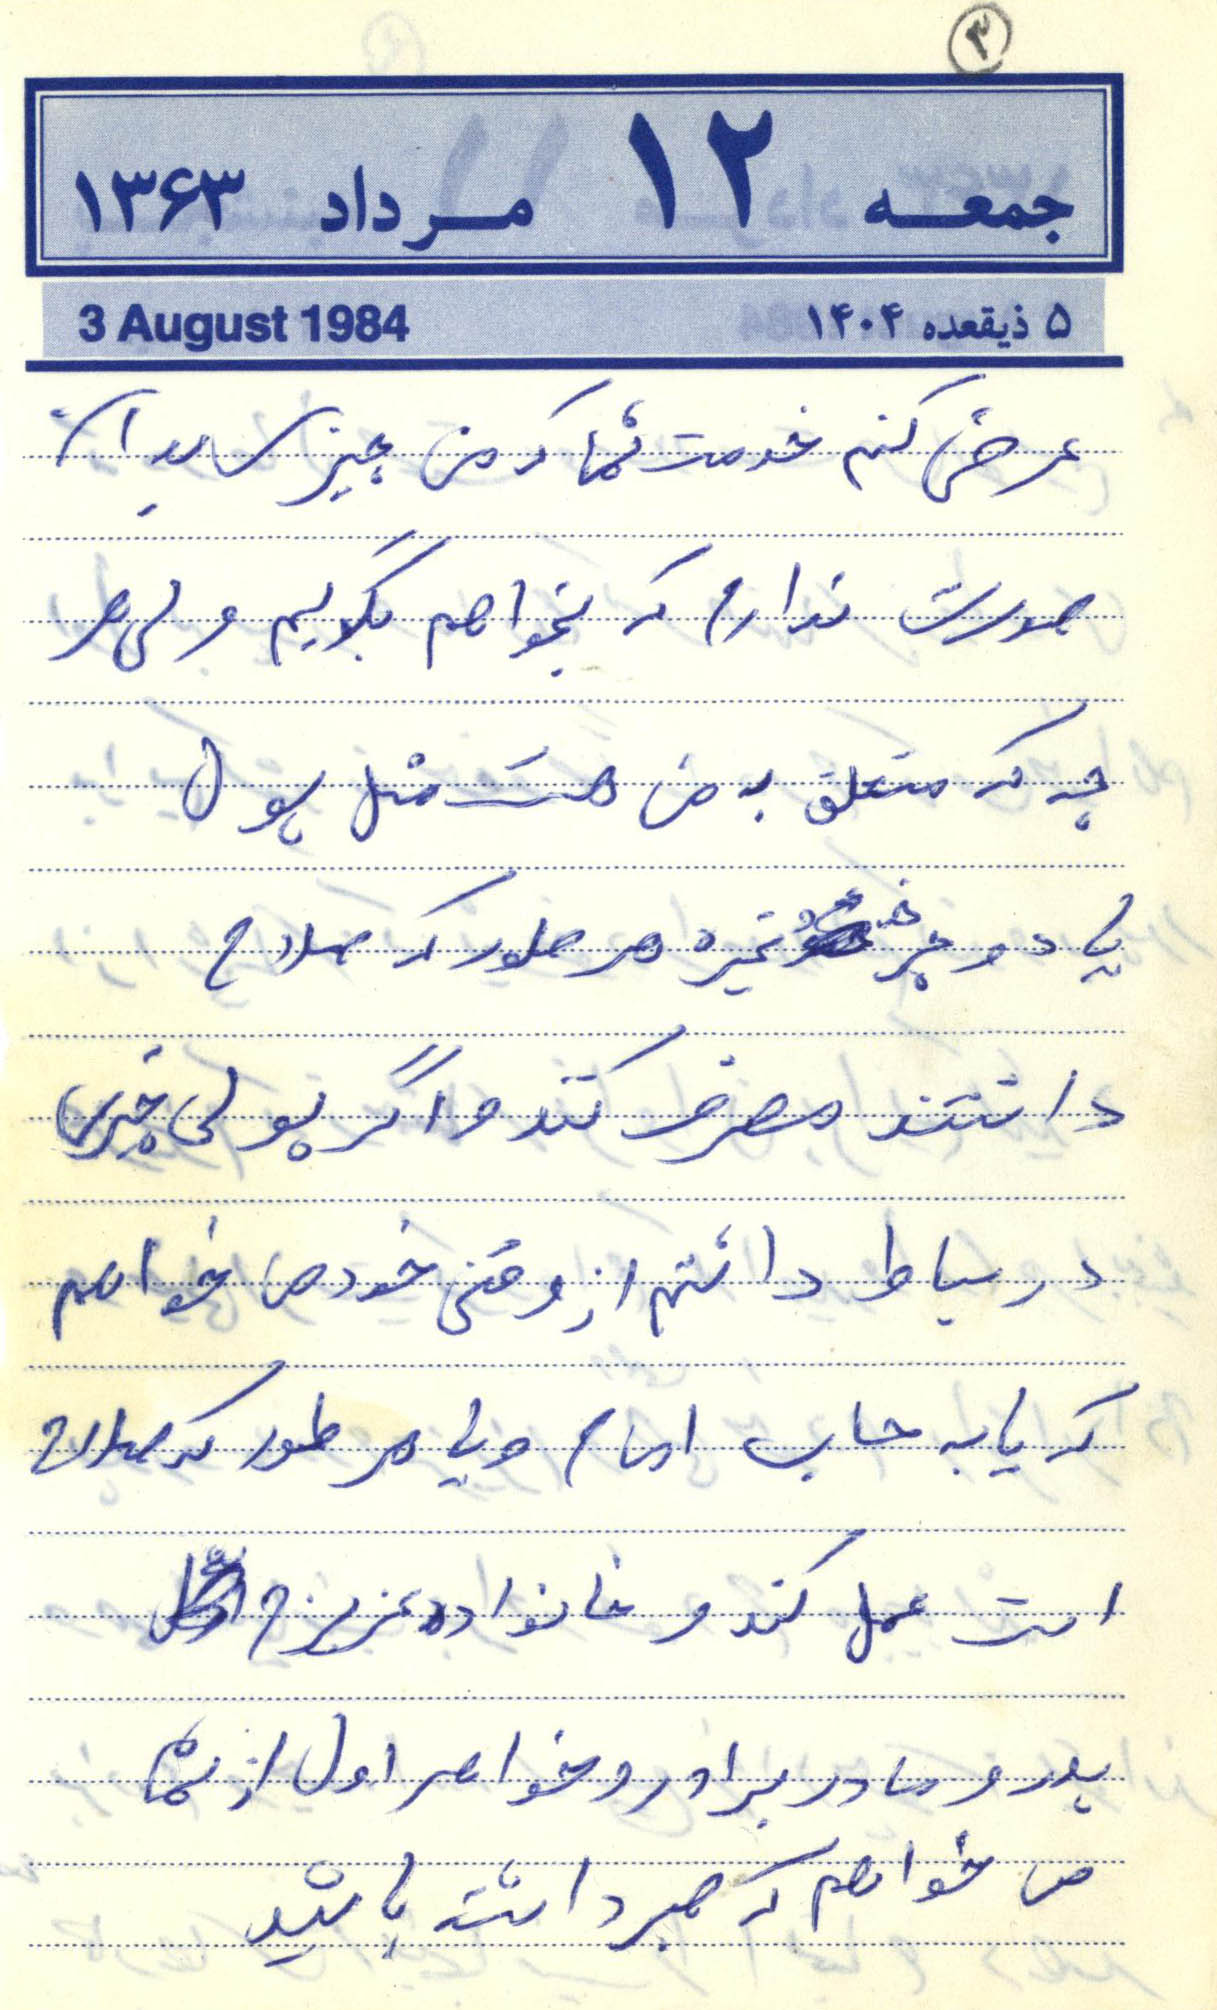 ۳
جمعه ۱۲ مرداد ۱۳۶۳
۵ ذیقعده ۱۴۰۴ 3 August 1984
عرض کنم خدمت شما که من چیز
صورت ندارم که بخواهم بگویم ولی هر
چه که متعلق به من هست مثل پول
یا دوچرخه وغیره هر طور که صلاح
داشتند مصرف کنند و اگر پولی چیزی
در بساط داشتم از وقتی خود می خواهم
که یا به حساب امام ویا هر طور که صلاح
است عمل کنند و خانواده عزیزم
پدر و مادر برادر و خواهر اول از شما
می خواهم که صبر داشته باشید